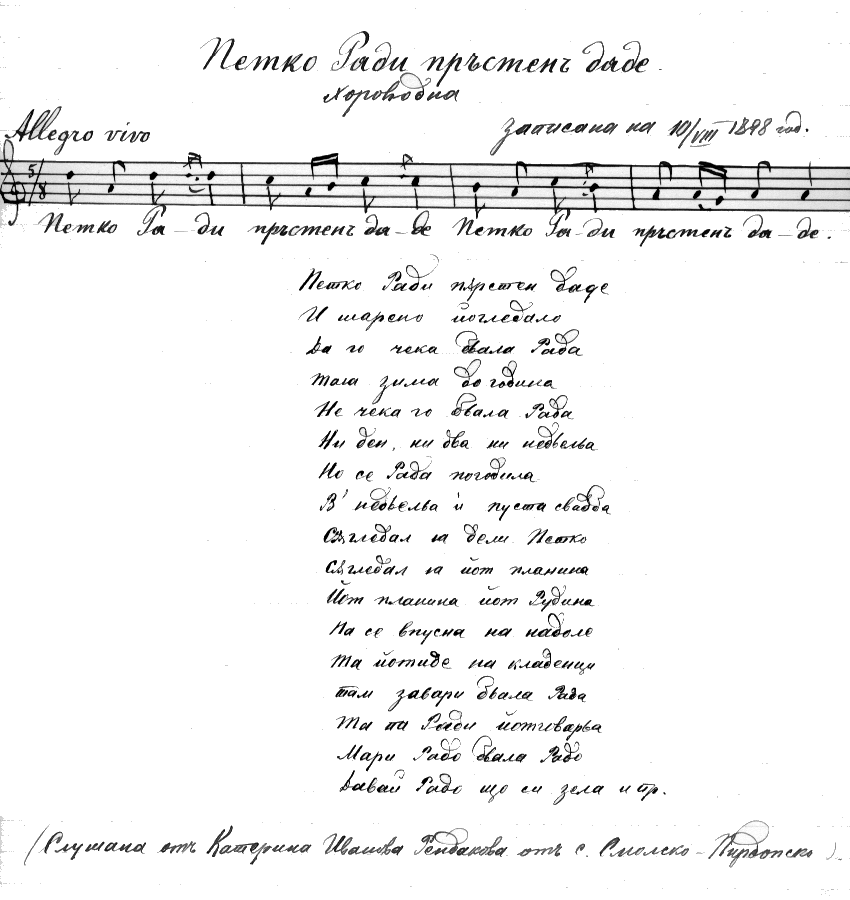 Петко Ради пръстенъ даде.
Хороводна
Allegro vivo
записана на 10/VIII 1898 год.
5/8
Петко Ра-ди пръстенъ да-де Петко Ра-ди пръстенъ да-де.
Петко Ради пърстен даде
И шарено йогледало
Да го чека бѣала Рада
таѭ зима до година
Не чека го бѣала Рада
Ни ден, ни два ни недѣельа
Но се Рада погодила
В' недѣельа й пуста свадба
Съгледал ѭ дели Петко
Съгледал ѭ йот планина
Йот планина йот Рудина
Па се впусна на надоле
Та йотиде на кладенци
там завари бѣала Рада
Та па Ради йотговарьа
Мари Радо бѣала Радо
Давай Радо що си зела и пр.
(Слушана отъ Катерина Иванова от с. Смолско - Пирдопско)